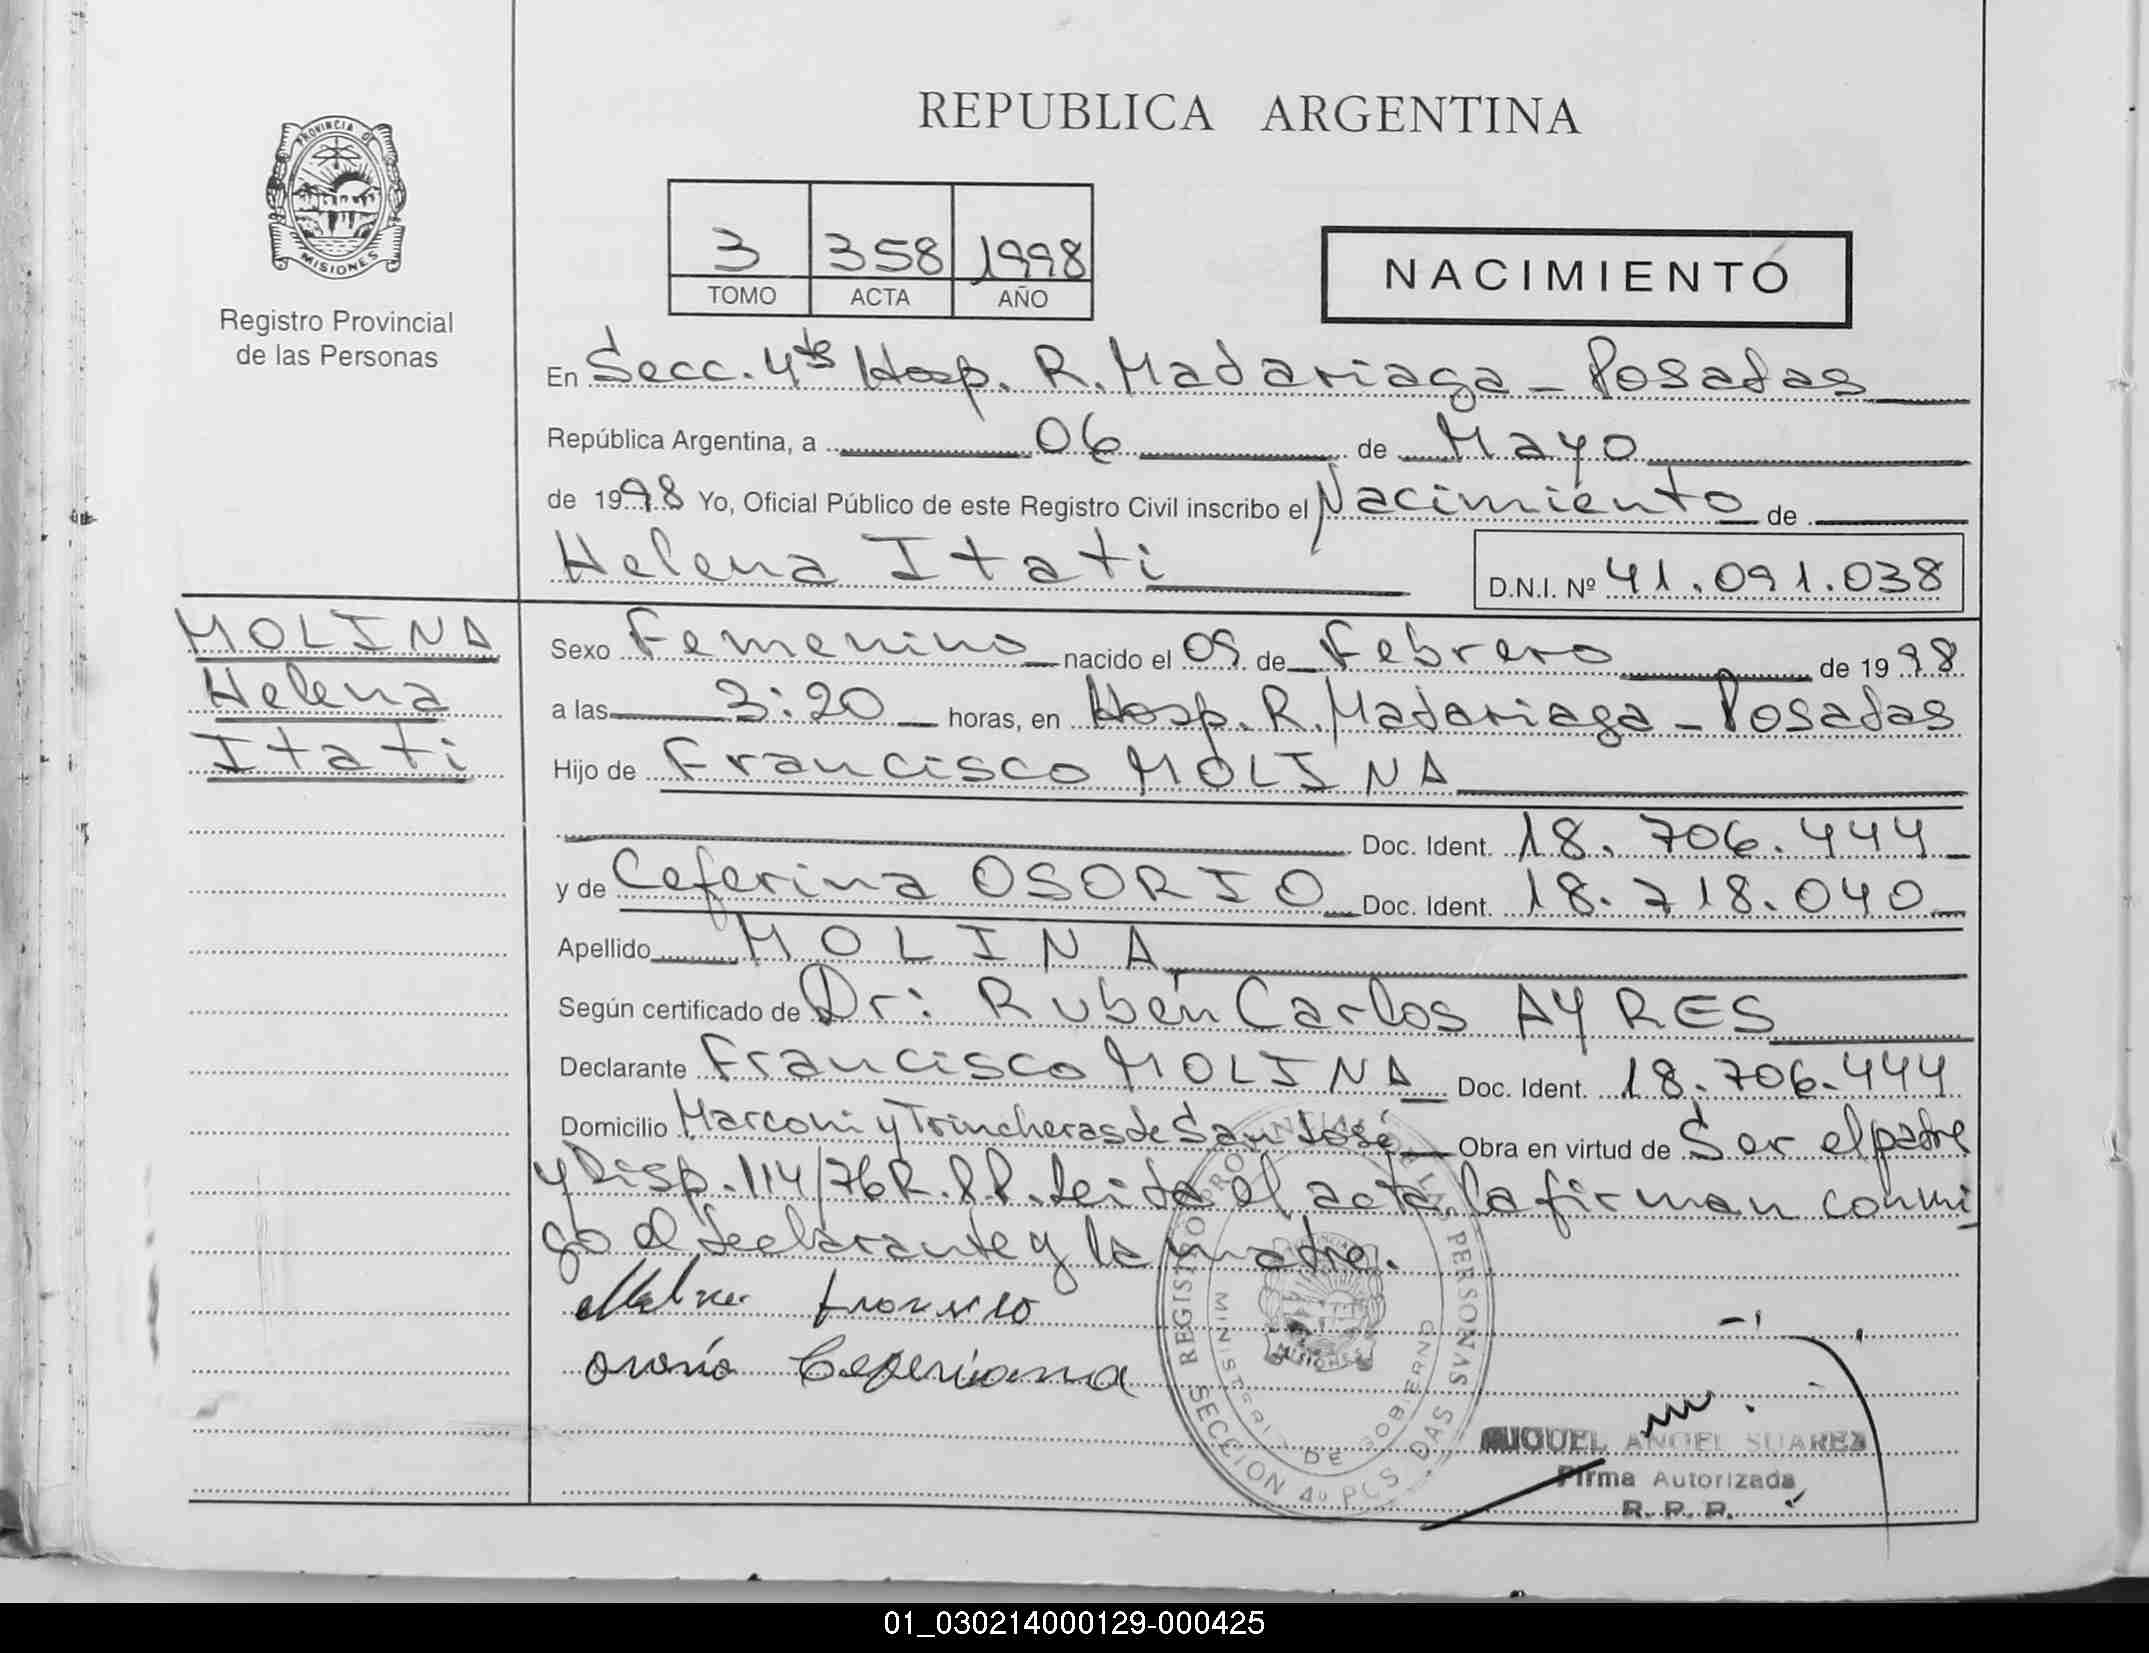 REPUBLICA ARGENTINA
PROVINCIA DE
MISIONES
Registro Provincial
de las Personas
3 358 1998
TOMO ACTA AÑO
NACIMIENTO
En Secc. 4ta Hosp. R. Madariaga - Posadas
República Argentina, a 06 de Mayo
de 1998 Yo, Oficial Público de este Registro Civil inscribo el Nacimiento de
Helena Itati
D.N.I. Nº 41.091.038
MOLINA
Helena
Itati
Sexo Femenino nacido el 09 de Febrero de 1998
a las 3:20 horas, en Hosp. R. Madariaga - Posadas
Hijo de Francisco MOLINA
Doc. Ident. 18.706.444
y de Ceferina OSORIO Doc. Ident. 18.718.040
Apellido MOLINA
Según certificado de Dr: Rubén Carlos AYRES
Declarante Francisco MOLINA Doc. Ident. 18.706.444
Domicilio Marconi y Trincheras de San José Obra en virtud de Ser el padre
y Disp. 114/76 R.P.P. Leida el acta la firman conmi
go el declarante y la madre.
Molina
osorio Ceferina
REGISTRO PROVINCIAL DE LAS PERSONAS
MINISTERIO DE GOBIERNO
MISIONES
SECCION 4º
MIGUEL ANGEL SUAREZ
Firma Autorizada
R. P. P.
01_030214000129-000425